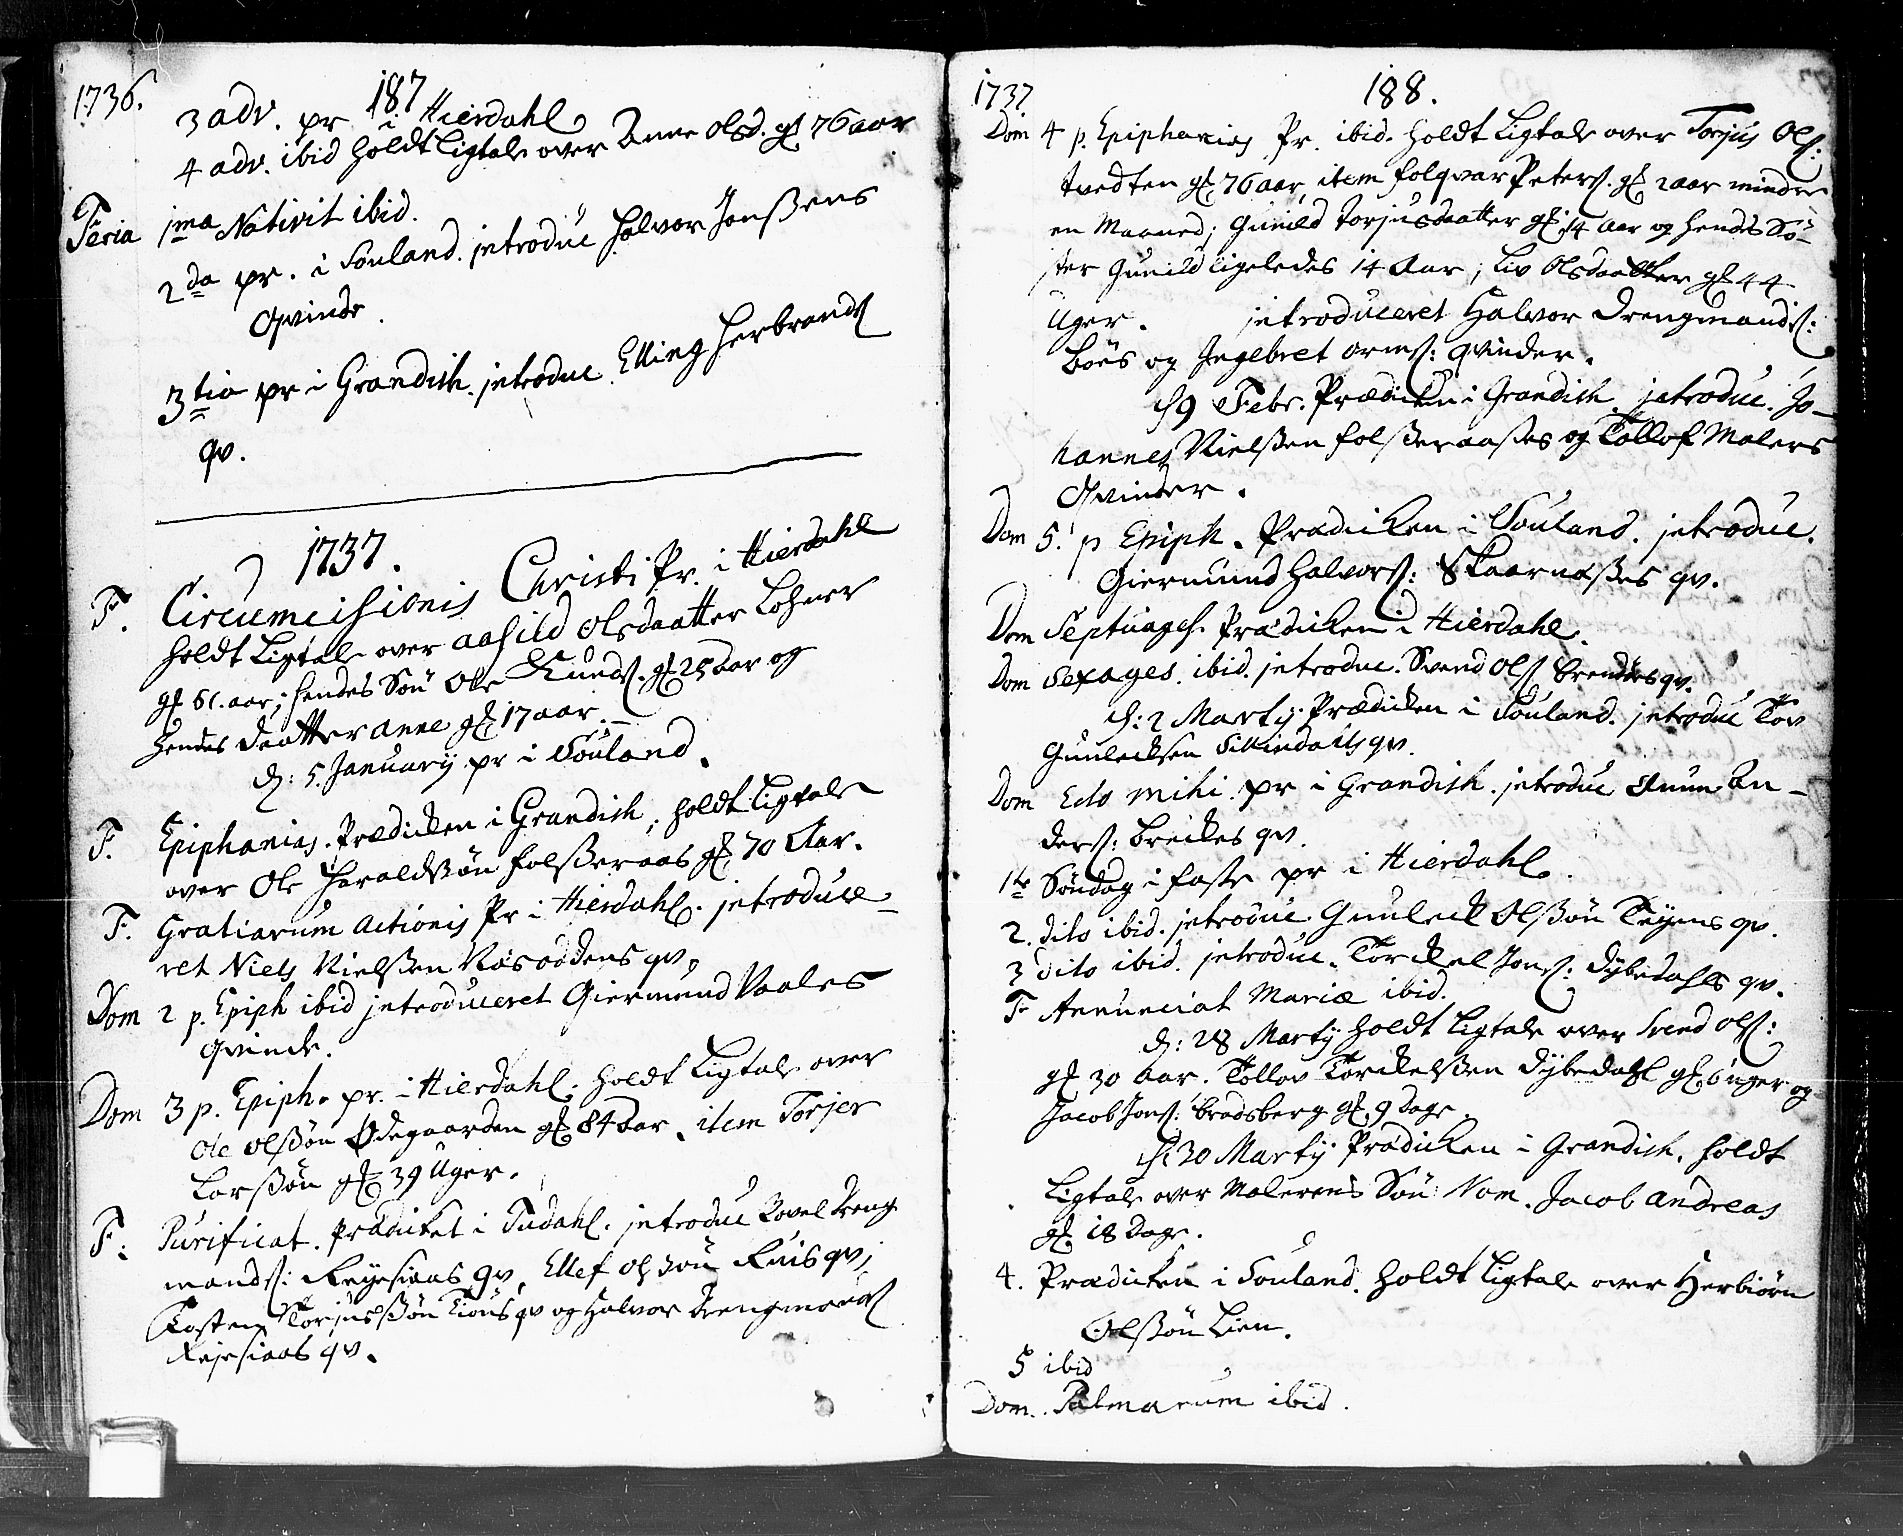 1736.
187
3 adv. pr i Hierdahl
4 adv. ibid holdt Ligtale over Anne Olsd. gl 76 aar
Feria 1ma Nativit ibid.
2da pr. i Souland. introduc Halvor Jonßens
Qvinde.
3tia pr i Gransish. introduc. Elling Herbrands
qv.
1737.
F. Circumcisionis Christi Pr. i Hierdahl
holdt Ligtale over Aasild Olsdaatter Lohner
gl 61. aar; hendes Søn Ole Knuds. gl 25 aar og
hendes daatter anne gl 17 aar.
d: 5. Januarij pr i Souland.
F. Epiphanias. Prædicken i Grandish, holdt Ligtale
over Ole Haraldßøn Folßeraas gl 70 Aar.
F. Gratiarum actionis Pr i Hierdahl. introduce-
ret Niels Nielßen qv.
Dom 2 p. Epiph ibid introduceret Giermund Vaales
qvinde.
Dom 3 p. Epiph. pr. i Hierdahl. holdt Ligtale over
Ole Olßøn Ødegaarden gl 84 aar. item Torjer
Larßøn gl 39 Uger.
F: Purificat. prædicket i Tudahl. introduc Povel Dreng
mands: qv, Ellef Olßøn qv,
Torjusßøn qv og Halvor Drengmands
qv.
1737
188.
Dom 4 p. Epiphanias Pr. ibid. holdt Ligtale over Torjus Ols:
tvedten gl 76 aar, item Folqvar Peters. gl 2 aar mindre
en Maaned; Gunild Torjusdaatter gl 14 aar og hendes Sø-
ster Gunild ligeledes 14 Aar; Liv Olsdaatter gl 44
Uger. introduceret Halvor Drengmands:
Boes og Ingebret Orms: qvinder.
d 9 Febr. Prædicken i Grandish. introduc. Jo-
hannes Nielßen Folßeraases og Tollof Malers
Qvinder.
Dom 5. p Epiph. Prædicken i Souland. introduc.
Giermund Halvors: Skaarnæßes qv.
Dom Septuages. Prædicken i Hierdahl.
Dom Sexages. ibid. introduc. Svend Ols qv.
d: 2 Martij Prædicken i Souland. introduc Tov
Gunlecksen qv.
Dom Esto mihi. pr i Grandish. introduc An-
ders: qv.
1te Søndag i faste pr i Hierdahl.
2. dito ibid. introduc. Gunleck Olßøn qv.
3 dito ibid. introduc. Torckel Jons: Dybedahls qv.
F Annunciat Mariæ ibid.
d: 28 Martij holdt Ligtale over Svend Ols:
gl 30 Aar. Tollov Torckelßen Dybedahl gl 6 uger og
Jacob Jons: Bradsberg gl 9 dage.
d: 30 Martij Prædicken i Grandish. holdt
Ligtale over Malerens Søn Nom. Jacob Andreas
gl 18 Dage.
4. Prædicken i Souland. holdt Ligtale over Herbiørn
Olßøn Lien.
5 ibid
Dom. Palmarum ibid.